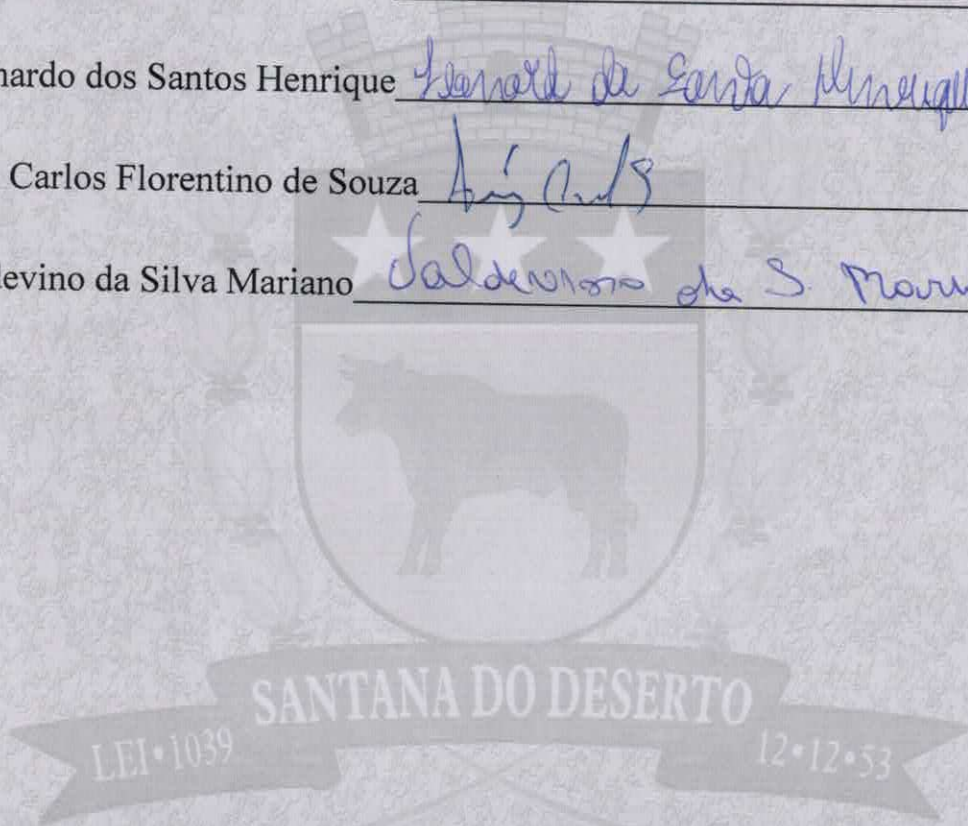 nardo dos Santos Henrique Leonardo dos Santos Henriqu
Carlos Florentino de Souza
levino da Silva Mariano Valdevino da S. Mari
SANTANA DO DESERTO
LEI•1039 12•12•53